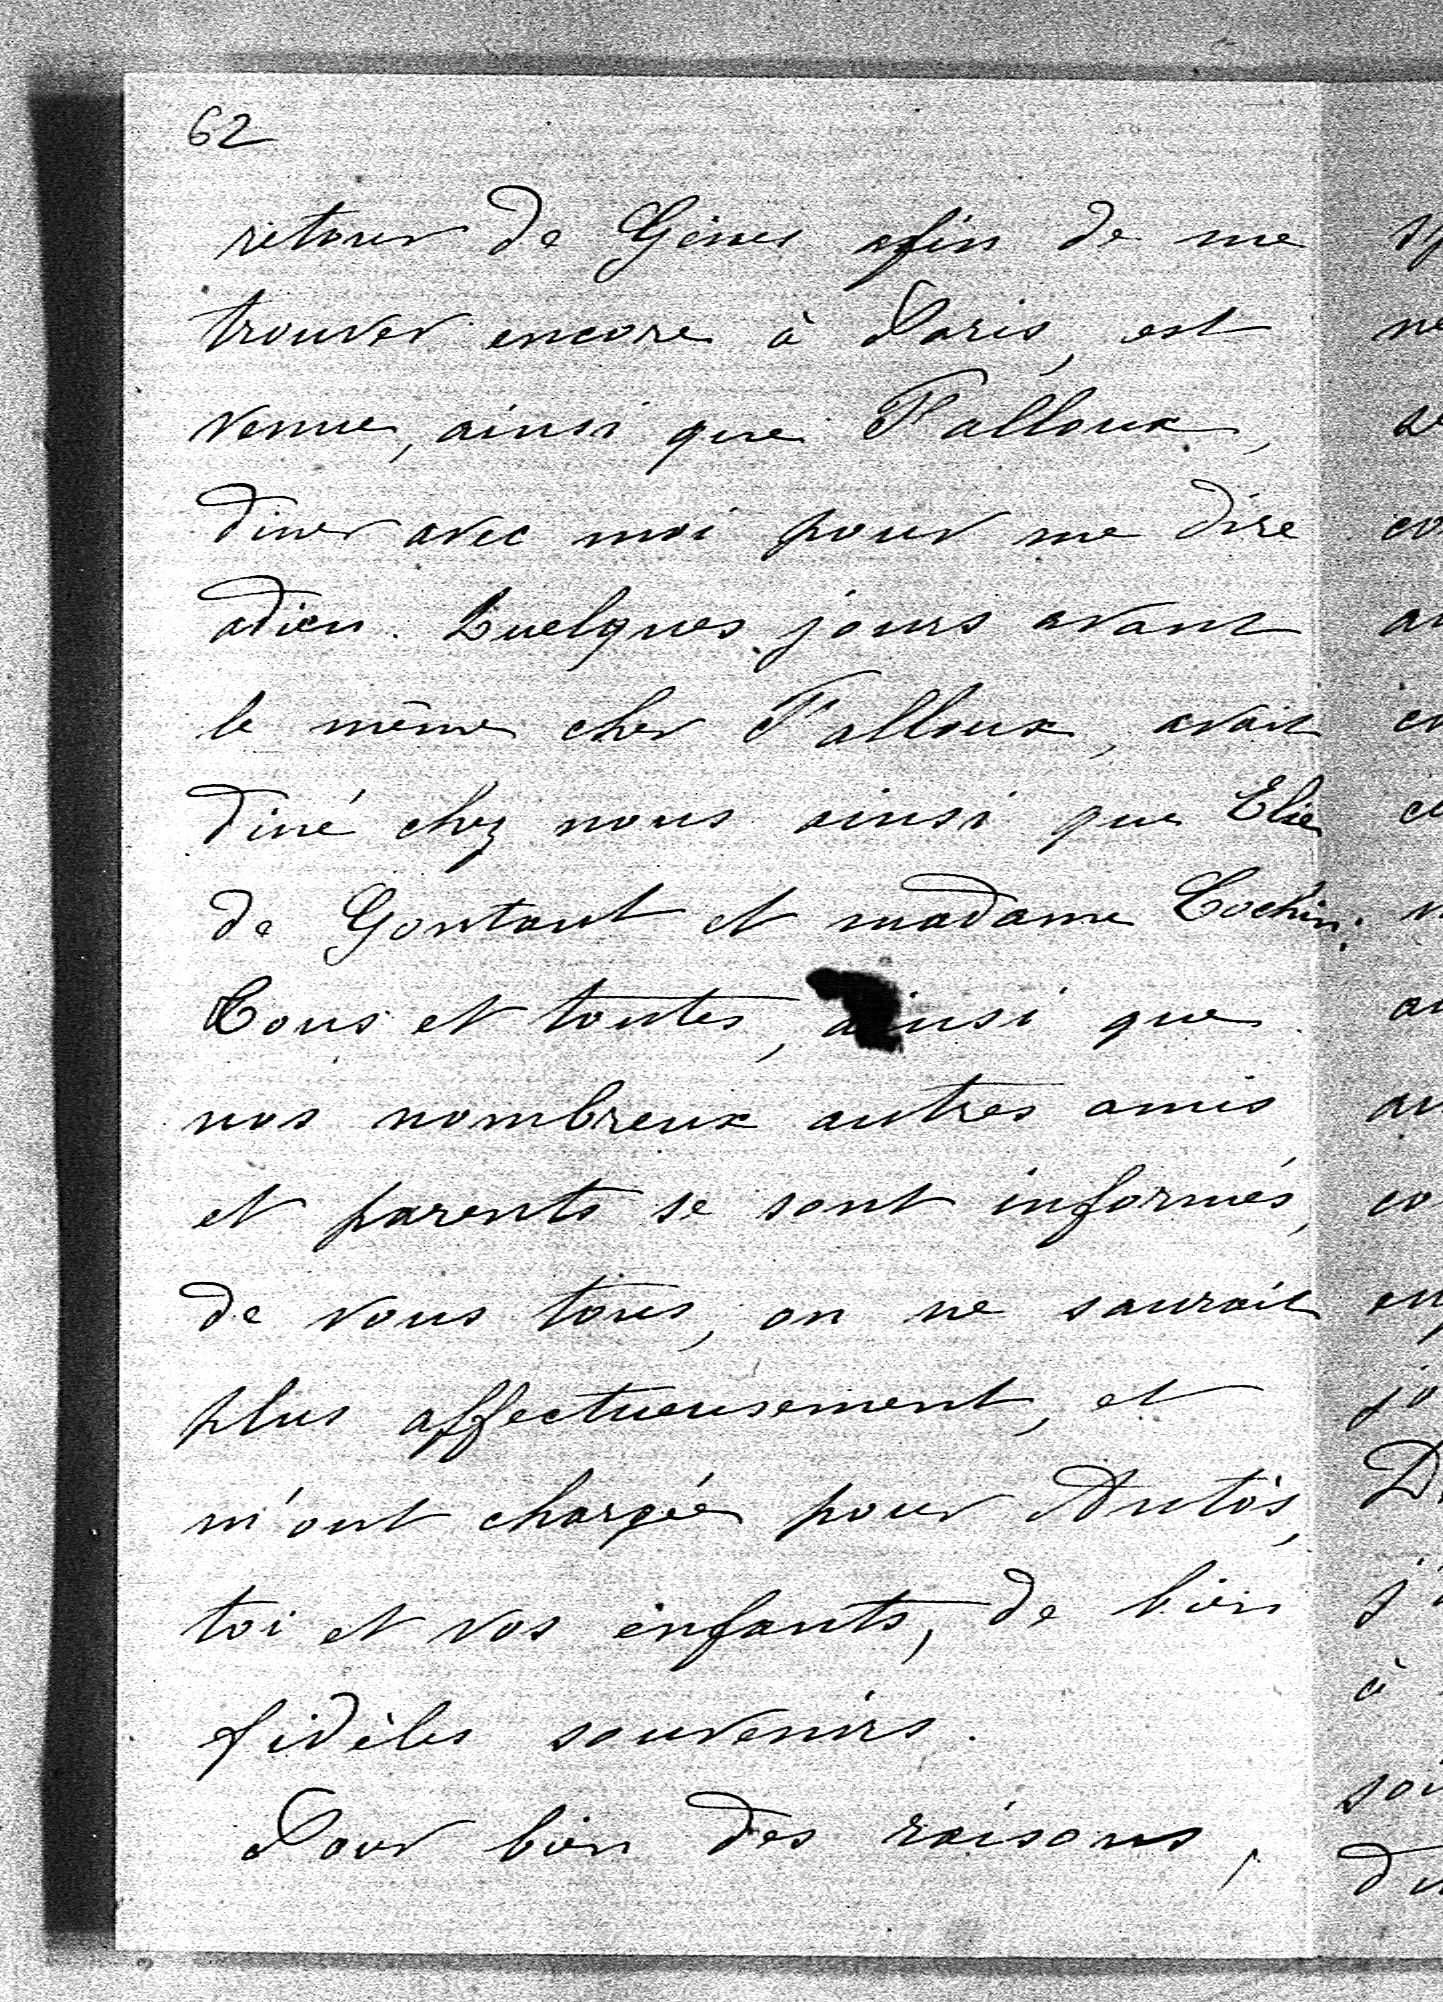 62
retour de Gênes afin de me
trouver encore à Paris, est
venue, ainsi que Falloux,
diner avec moi pour me dire
adieu. Quelques jours avant
le même cher Falloux, avait
diné chez nous ainsi que Elie
de Gontaut et madame Cochin.
Tous et toutes, ainsi que
nos nombreux autres amis
et parents se sont informés,
de vous tous, on ne saurait
plus affectueusement, et
m'ont chargée pour Antos,
toi et vos enfants, de bien
fidèles souvenirs.
Pour bien des raisons,